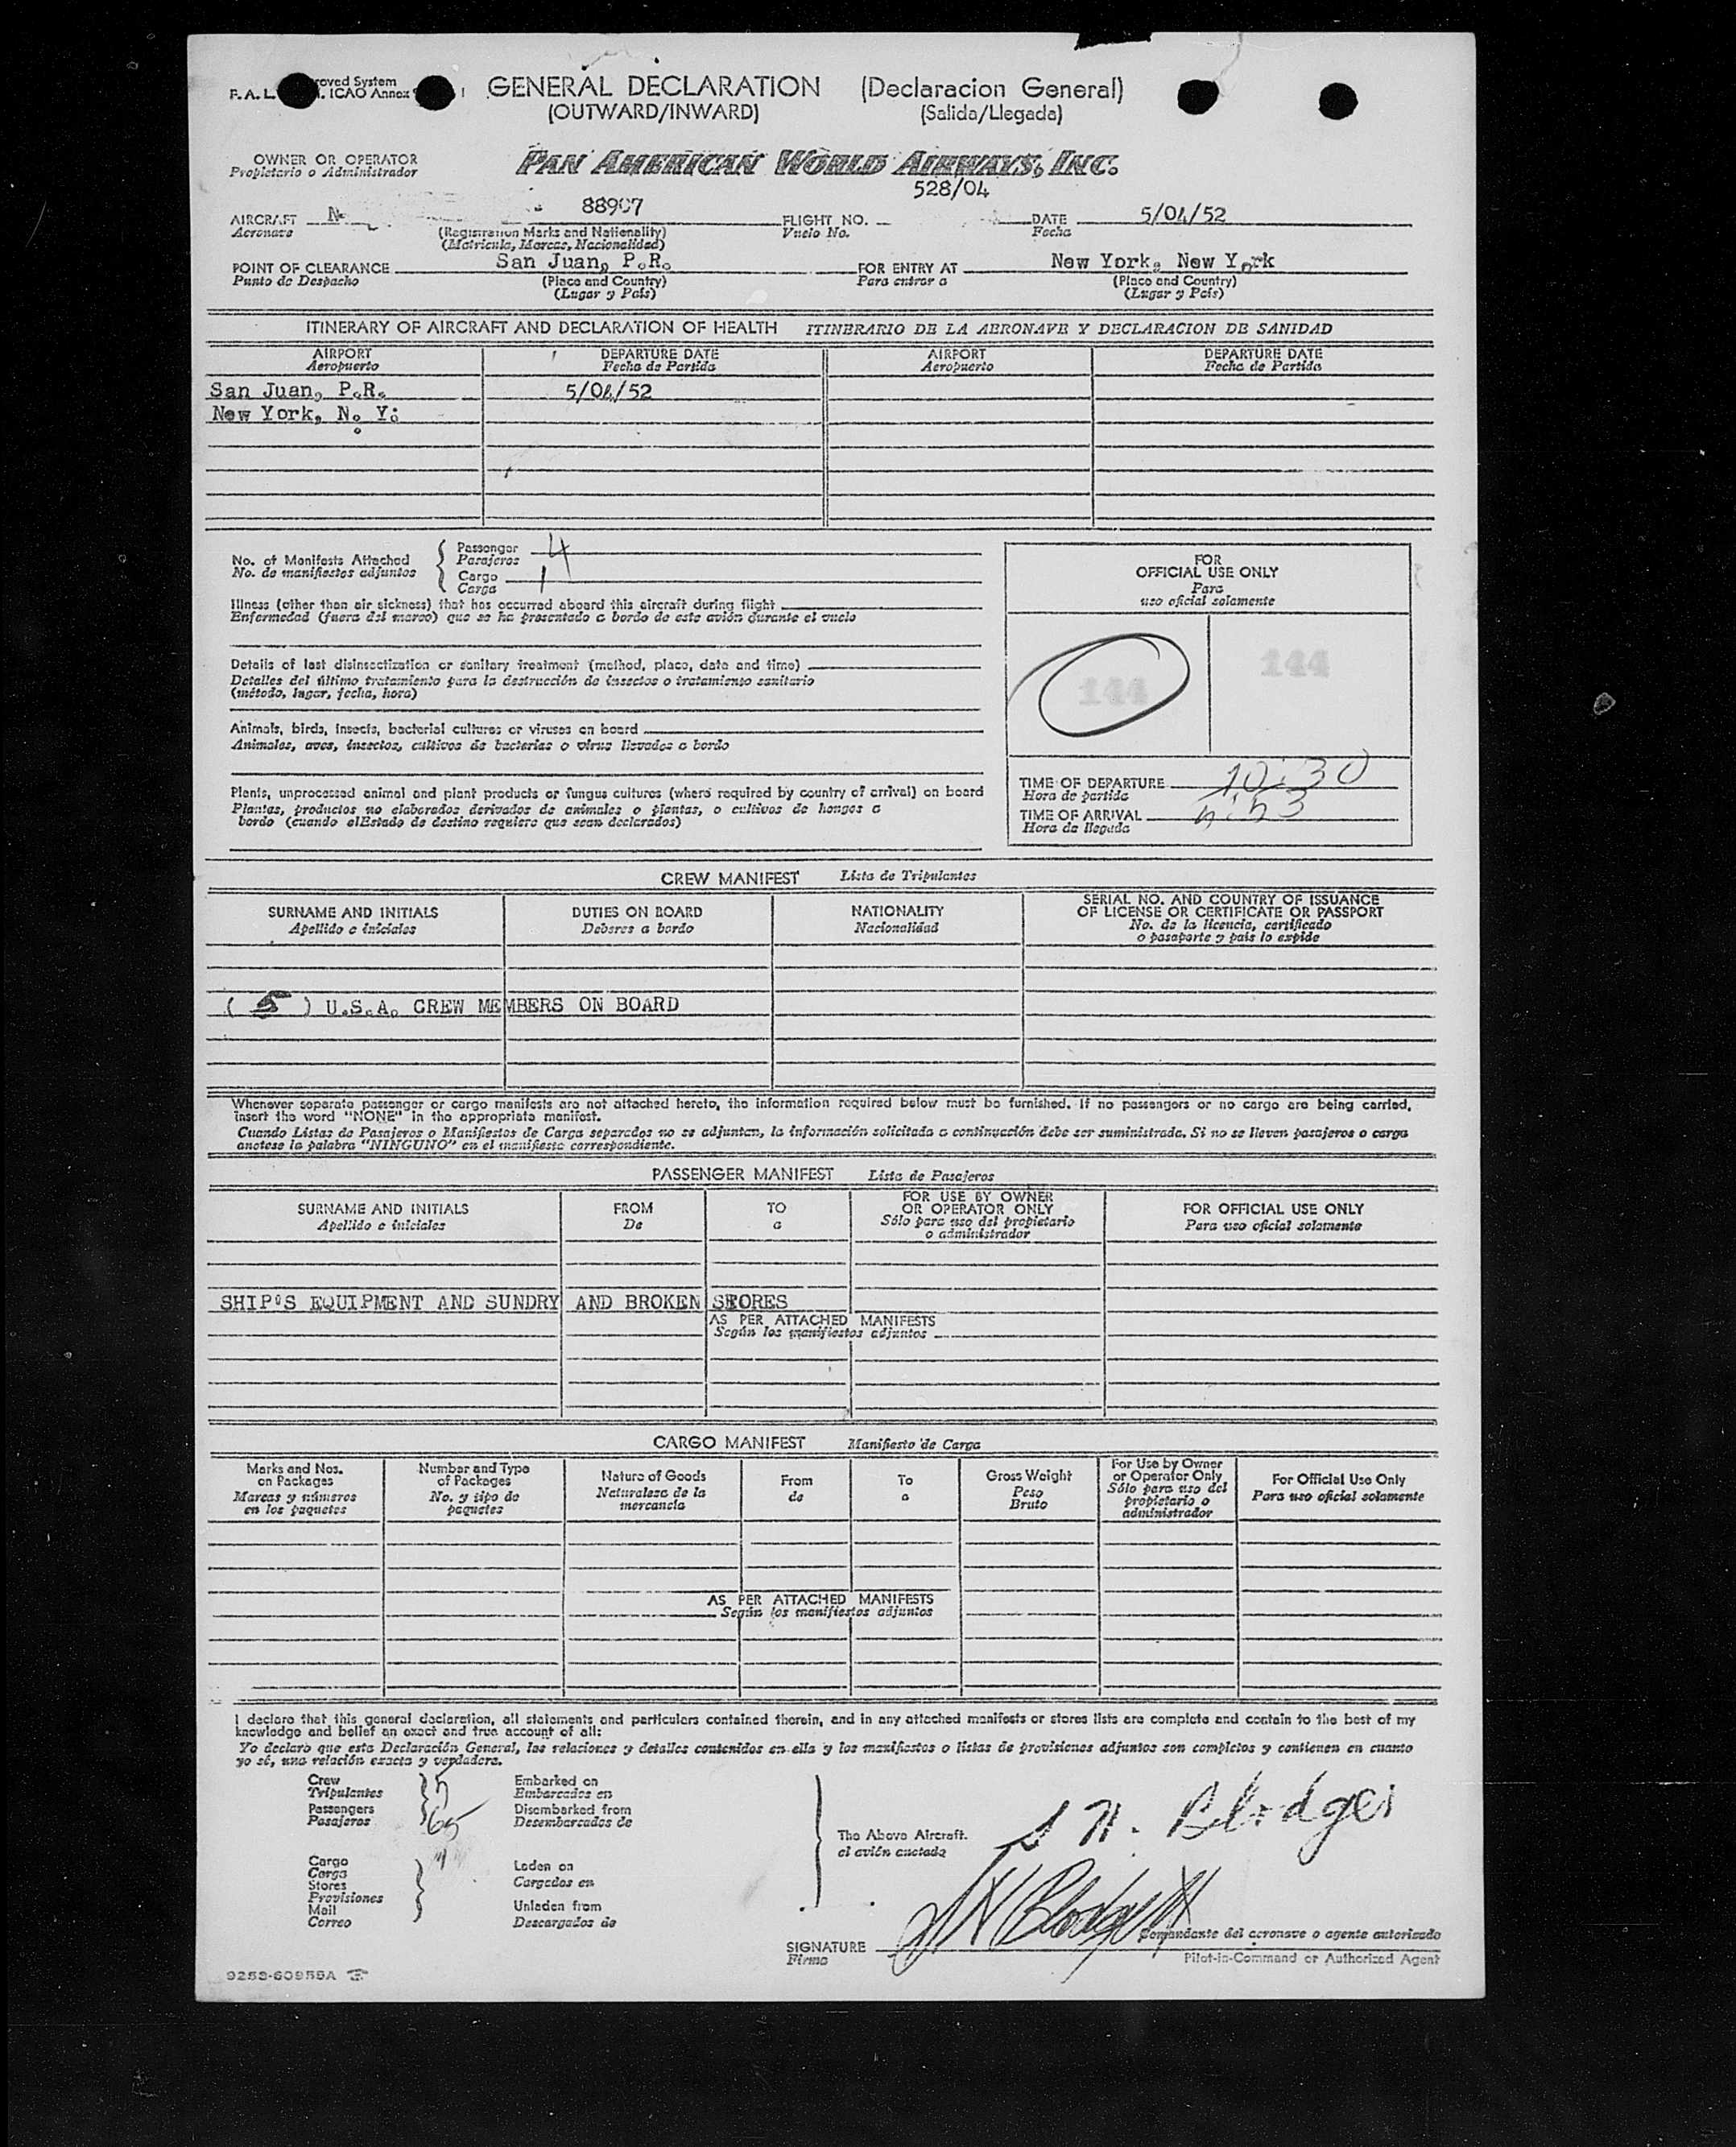 F. A. L. roved System
ICAO Annex
GENERAL DECLARATION (Declaracion General)
(OUTWARD/INWARD) (Salida/Llegada)
OWNER OR OPERATOR
Propietario o Administrador
PAN AMERICAN WORLD AIRWAYS, INC.
528/04
AIRCRAFT N- 88907 FLIGHT NO. DATE 5/04/52
Aeronave (Registration Marks and Nationality) Vuelo No. Fecha
(Matricula, Marcas, Nacionalidad)
POINT OF CLEARANCE San Juan, P.R. FOR ENTRY AT New York, New York
Punto de Despacho (Place and Country) Para entrar a (Place and Country)
(Lugar y País) (Lugar y País)
ITINERARY OF AIRCRAFT AND DECLARATION OF HEALTH ITINERARIO DE LA AERONAVE Y DECLARACION DE SANIDAD
AIRPORT DEPARTURE DATE AIRPORT DEPARTURE DATE
Aeropuerto Fecha de Partida Aeropuerto Fecha de Partida
San Juan, P.R. 5/04/52
New York, N. Y.
No. of Manifests Attached
No. de manifiestos adjuntos
Passenger 4
Pasajeros
Cargo 1
Carga
Illness (other than air sickness) that has occurred aboard this aircraft during flight
Enfermedad (fuera del mareo) que se ha presentado a bordo de este avión durante el vuelo
Details of last disinsectization or sanitary treatment (method, place, date and time)
Detalles del último tratamiento para la destrucción de insectos o tratamiento sanitario
(método, lugar, fecha, hora)
Animals, birds, insects, bacterial cultures or viruses on board
Animales, aves, insectos, cultivos de bacterias o virus llevados a bordo
Plants, unprocessed animal and plant products or fungus cultures (where required by country of arrival) on board
Plantas, productos no elaborados derivados de animales o plantas, o cultivos de hongos a
bordo (cuando elEstado de destino requiere que sean declarados)
FOR
OFFICIAL USE ONLY
Para
uso oficial solamente
144 144
TIME OF DEPARTURE 10:30
Hora de partida
TIME OF ARRIVAL 5:53
Hora de llegada
CREW MANIFEST Lista de Tripulantes
SURNAME AND INITIALS DUTIES ON BOARD NATIONALITY SERIAL NO. AND COUNTRY OF ISSUANCE
OF LICENSE OR CERTIFICATE OR PASSPORT
Apellido e iniciales Deberes a bordo Nacionalidad No. de la licencia, certificado
o pasaporte y país lo expide
( 5 ) U.S.A. CREW MEMBERS ON BOARD
Whenever separate passenger or cargo manifests are not attached hereto, the information required below must be furnished. If no passengers or no cargo are being carried,
insert the word "NONE" in the appropriate manifest.
Cuando Listas de Pasajeros o Manifiestos de Carga separados no se adjuntan, la información solicitada a continuación debe ser suministrada. Si no se lleven pasajeros o carga
anotese la palabra "NINGUNO" en el manifiesto correspondiente.
PASSENGER MANIFEST Lista de Pasajeros
SURNAME AND INITIALS FROM TO FOR USE BY OWNER
OR OPERATOR ONLY FOR OFFICIAL USE ONLY
Apellido e iniciales De a Sólo para uso del propietario
o administrador Para uso oficial solamente
SHIP'S EQUIPMENT AND SUNDRY AND BROKEN STORES
AS PER ATTACHED MANIFESTS
Según los manifiestos adjuntos
CARGO MANIFEST Manifiesto de Carga
Marks and Nos.
on Packages
Marcas y números
en los paquetes
Number and Type
of Packages
No. y tipo de
paquetes
Nature of Goods
Naturaleza de la
mercancia
From
de
To
a
Gross Weight
Peso
Bruto
For Use by Owner
or Operator Only
Sólo para uso del
propietario o
administrador
For Official Use Only
Para uso oficial solamente
AS PER ATTACHED MANIFESTS
Según los manifiestos adjuntos
I declare that this general declaration, all statements and particulars contained therein, and in any attached manifests or stores lists are complete and contain to the best of my
knowledge and belief an exact and true account of all:
Yo declaro que esta Declaración General, las relaciones y detalles contenidos en ella y los manifiestos o listas de provisiones adjuntos son completos y contienen en cuanto
yo sé, una relación exacta y verdadera.
Crew 5
Tripulantes
Passengers 65
Pasajeros
Embarked on
Embarcados en
Disembarked from
Desembarcados de
Cargo
Carga
Stores
Provisiones
Mail
Correo
Laden on
Cargados en
Unladen from
Descargados de
The Above Aircraft.
el avión anotado
SIGNATURE
Firma
Comandante del aeronave o agente autorizado
Pilot-in-Command or Authorized Agent
9253-60955A